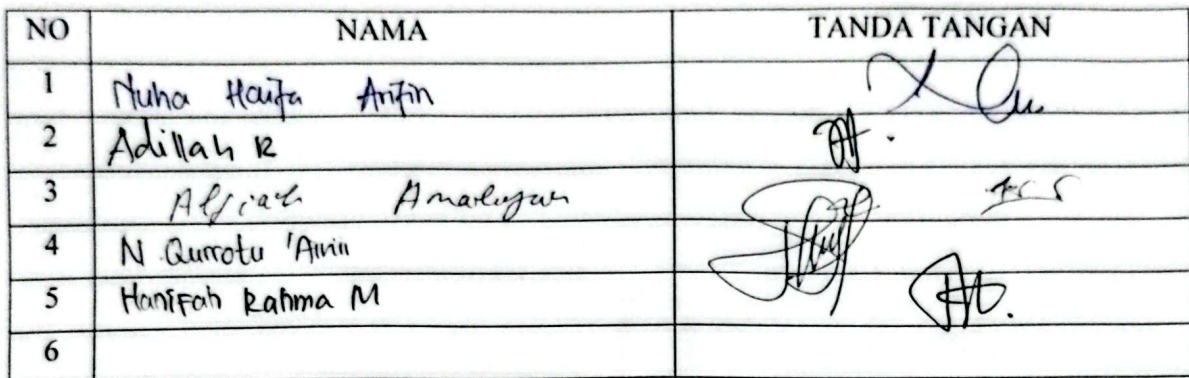 NO NAMA TANDA TANGAN
1 Nuha Haifa Arifin
2 Adillah R
3
4 N Qurrotu 'Ainin
5 Hanifah Rahma M
6